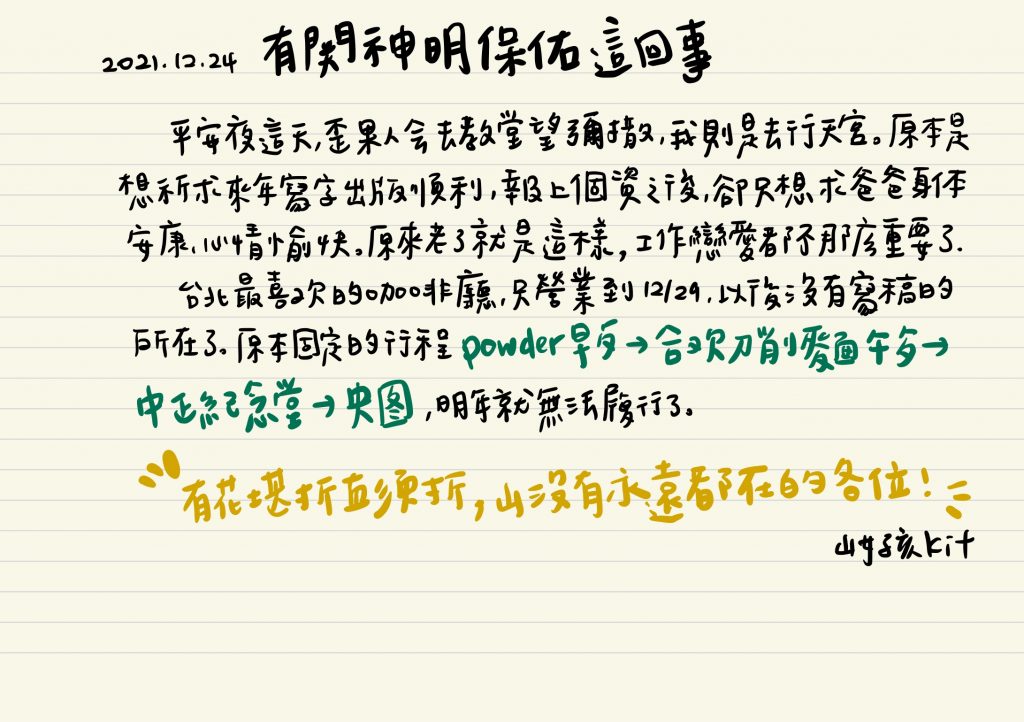 2021.12.24 有関神明保佑這回事
平安夜這天,歪果人会去教堂望彌撒,我則是去行天宮。原本是
想祈求來年寫字出版順利,報上個資之後,卻只想求爸爸身体
安康、心情愉快。原來老了就是這樣,工作戀愛都不那麼重要了.
台北最喜欢的咖啡廳,只營業到12/29,以後沒有寫稿的
所在了。原本固定的行程powder早午→合欢刀削麵午夕→
中正紀念堂→央图,明年就無法履行了。
有花堪折直須折,山沒有永遠都在的各位!
山女孩kit